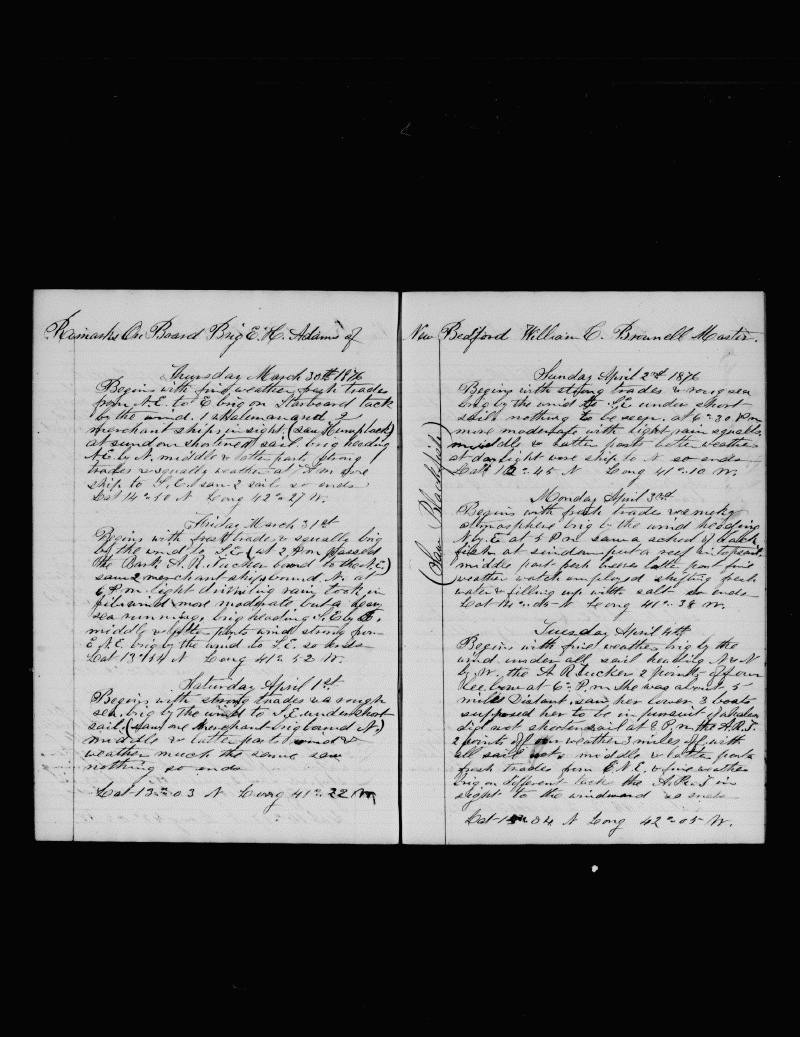 Remarks On Board Brig E. H. Adams of
Thursday March 30th 1876
Begins with fine weather fresh trades
from N.E. to E brig on Starboard tack
by the wind. 1 Whaleman and 2
merchant ships in sight. (saw Humpback)
at sundown shortened sail. brig heading
N.E. by N. middle & latter parts strong
trades & squally weather at A.m. wore
ship to S.E. saw 2 sail so ends
Lat 14=50 N Long 42=27 W.
Friday March 31st
Begins with fresh trades & squally brig
by the wind to S.E. (at 2 P.m. passed
the Bark A. R. Tucker bound to the N.E.)
saw 2 merchant ships bound N. at
6 P.m. light drizzling rain, took in
wind more moderate, but a heavy
sea running, brig heading S.E. by E.
middle & latter parts wind strong from
E.N.E. brig by the wind to S.E. so ends
Lat 13=54 N Long 41=52 W.
Saturday April 1st
Begins with strong trades & a rough
sea, brig by the wind to S.E. under short
sail. (saw one Merchant brig bound N.)
middle & latter parts wind &
weather much the same saw
nothing so ends
Lat 13=03 N Long 41=22 W
New Bedford William C. Brownell Master.
Sunday April 2nd 1876
Begins with strong trades & rough sea
brig by the wind to S.E. under short
sail. nothing to be seen, at 6=30 P.m
more moderate with light rain squalls,
middle & latter parts better weather
at daylight wore ship to N so ends
Lat 12=45 N Long 41=10 W.
(Saw Blackfish)
Monday April 3rd
Begins with fresh trades & smoky
atmosphere brig by the wind heading
N. by E. at 5 P.m. saw a school of black
fish at sundown put a reef in topsail.
middle part fresh breeze latter part fine
weather watch employed shifting fresh
water & filling up with salt so ends
Lat 14=05 N Long 41=38 W.
Tuesday April 4th
Begins with fine weather, brig by the
wind under all sail heading N & N
by W. the A R Tucker 2 points off our
lee bow at 6= P.m. she was about 5
miles Distant, saw her lower 3 boats
supposed her to be in pursuit of whales
did not shorten sail at 8 P.m. the A.R.T.
2 points off our weather 3 miles off with
all sail middle & latter parts
fresh trades from E.N.E. & fine weather
brig on different tack the A.R.T in
sight to the windward so ends
Lat 04 N Long 42=05 W.